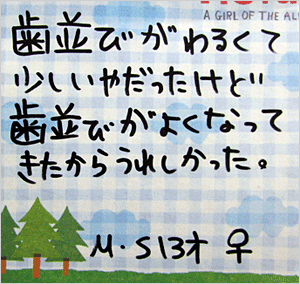 A GIRL OF THE AL
歯並びがわるくて
少しいやだったけど
歯並びがよくなって
きたからうれしかった。
M・S 13才 ♀